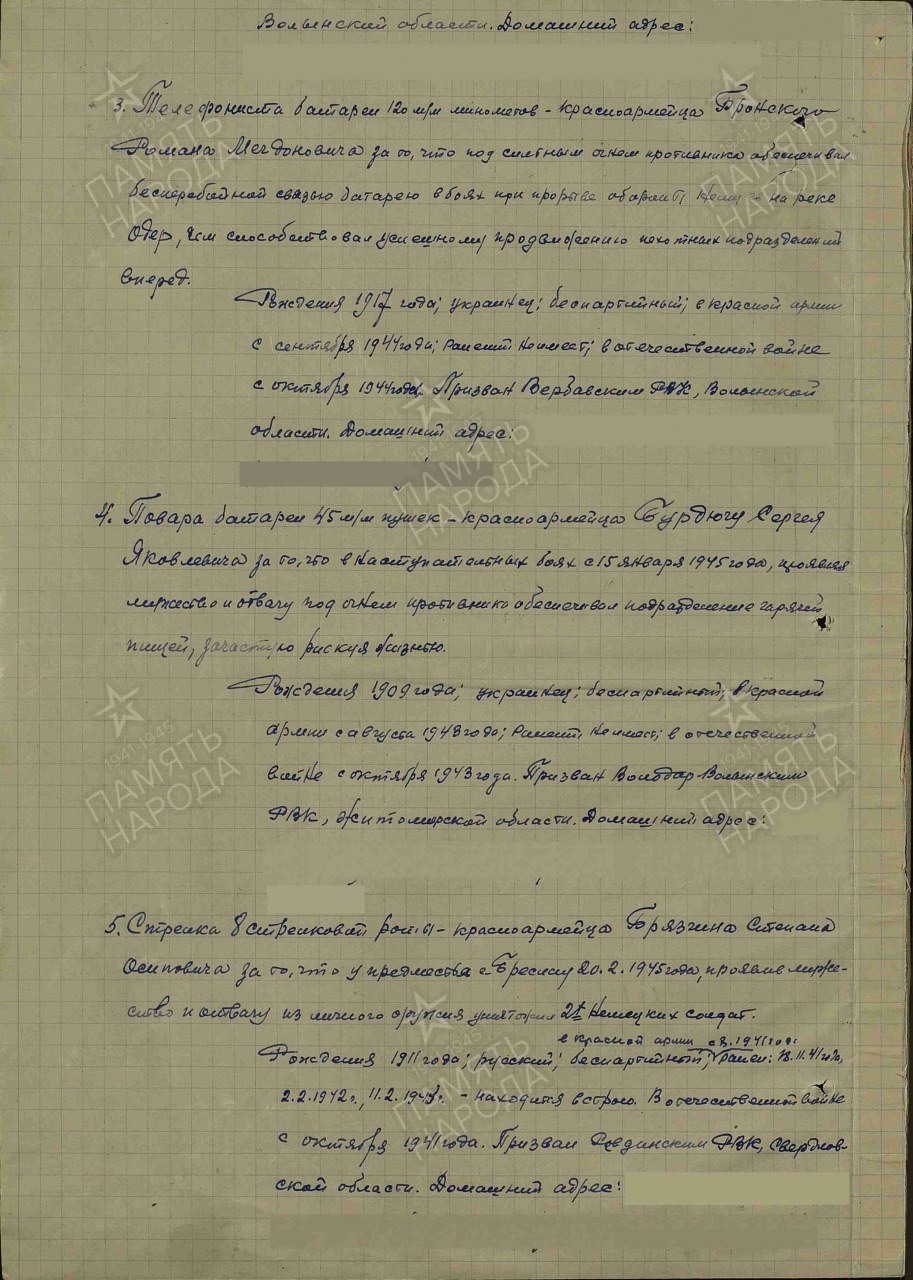 Волынской области. Домашний адрес:
3. Телефониста батареи 120 м/м минометов - красноармейца Бронского
Романа Мечдоновича за то, что под сильным огнем противника обеспечивал
бесперебойной связью батарею в боях при прорыве обороны немцев на реке
Одер, чем способствовал успешному продвижению пехотных подразделений
вперед.
Рождения 1917 года; украинец; беспартийный; в красной армии
с сентября 1944 года; ранений не имеет; в отечественной войне
с октября 1944 года. Призван Вербавским РВК, Волынской
области. Домашний адрес:
4. Повара батареи 45 м/м пушек - красноармейца Бурдюгу Сергея
Яковлевича за то, что в наступательных боях с 15 января 1945 года, проявляя
мужество и отвагу под огнем противника обеспечивал подразделение горячей
пищей, зачастую рискуя жизнью.
Рождения 1909 года; украинец; беспартийный; в красной
армии с августа 1943 года; ранений не имеет; в отечественной
войне с октября 1943 года. Призван Волынским
РВК, Житомирской области. Домашний адрес:
5. Стрелка 8 стрелковой роты - красноармейца Брязгина Степана
Осиповича за то, что у предместья г. Бреслау 20.2.1945 года, проявив муже-
ство и отвагу из личного оружия уничтожил немецких солдат.
в красной армии с 1941 года
Рождения 1911 года; русский; беспартийный; ранен: 18.11.41 года,
2.2.1942 г., - находится в строю. В отечественной войне
с октября 1941 года. Призван Ревдинским РВК, Свердлов-
ской области. Домашний адрес:
1941-1945
ПАМЯТЬ
НАРОДА